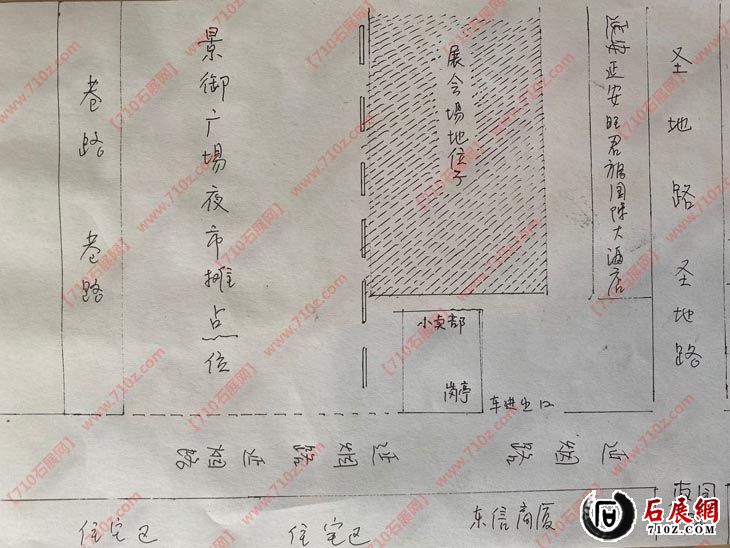 巷路
巷路
景御广场夜市摊点位
展会場地位子
延安正安旺君旅国际大酒店
圣地路
圣地路
小卖部
岗亭
车进出口
延烟路
延烟路
延烟路
住宅区
住宅区
东信商厦
石展網
WWW.710Z.COM
【710石展网】
www.710z.com